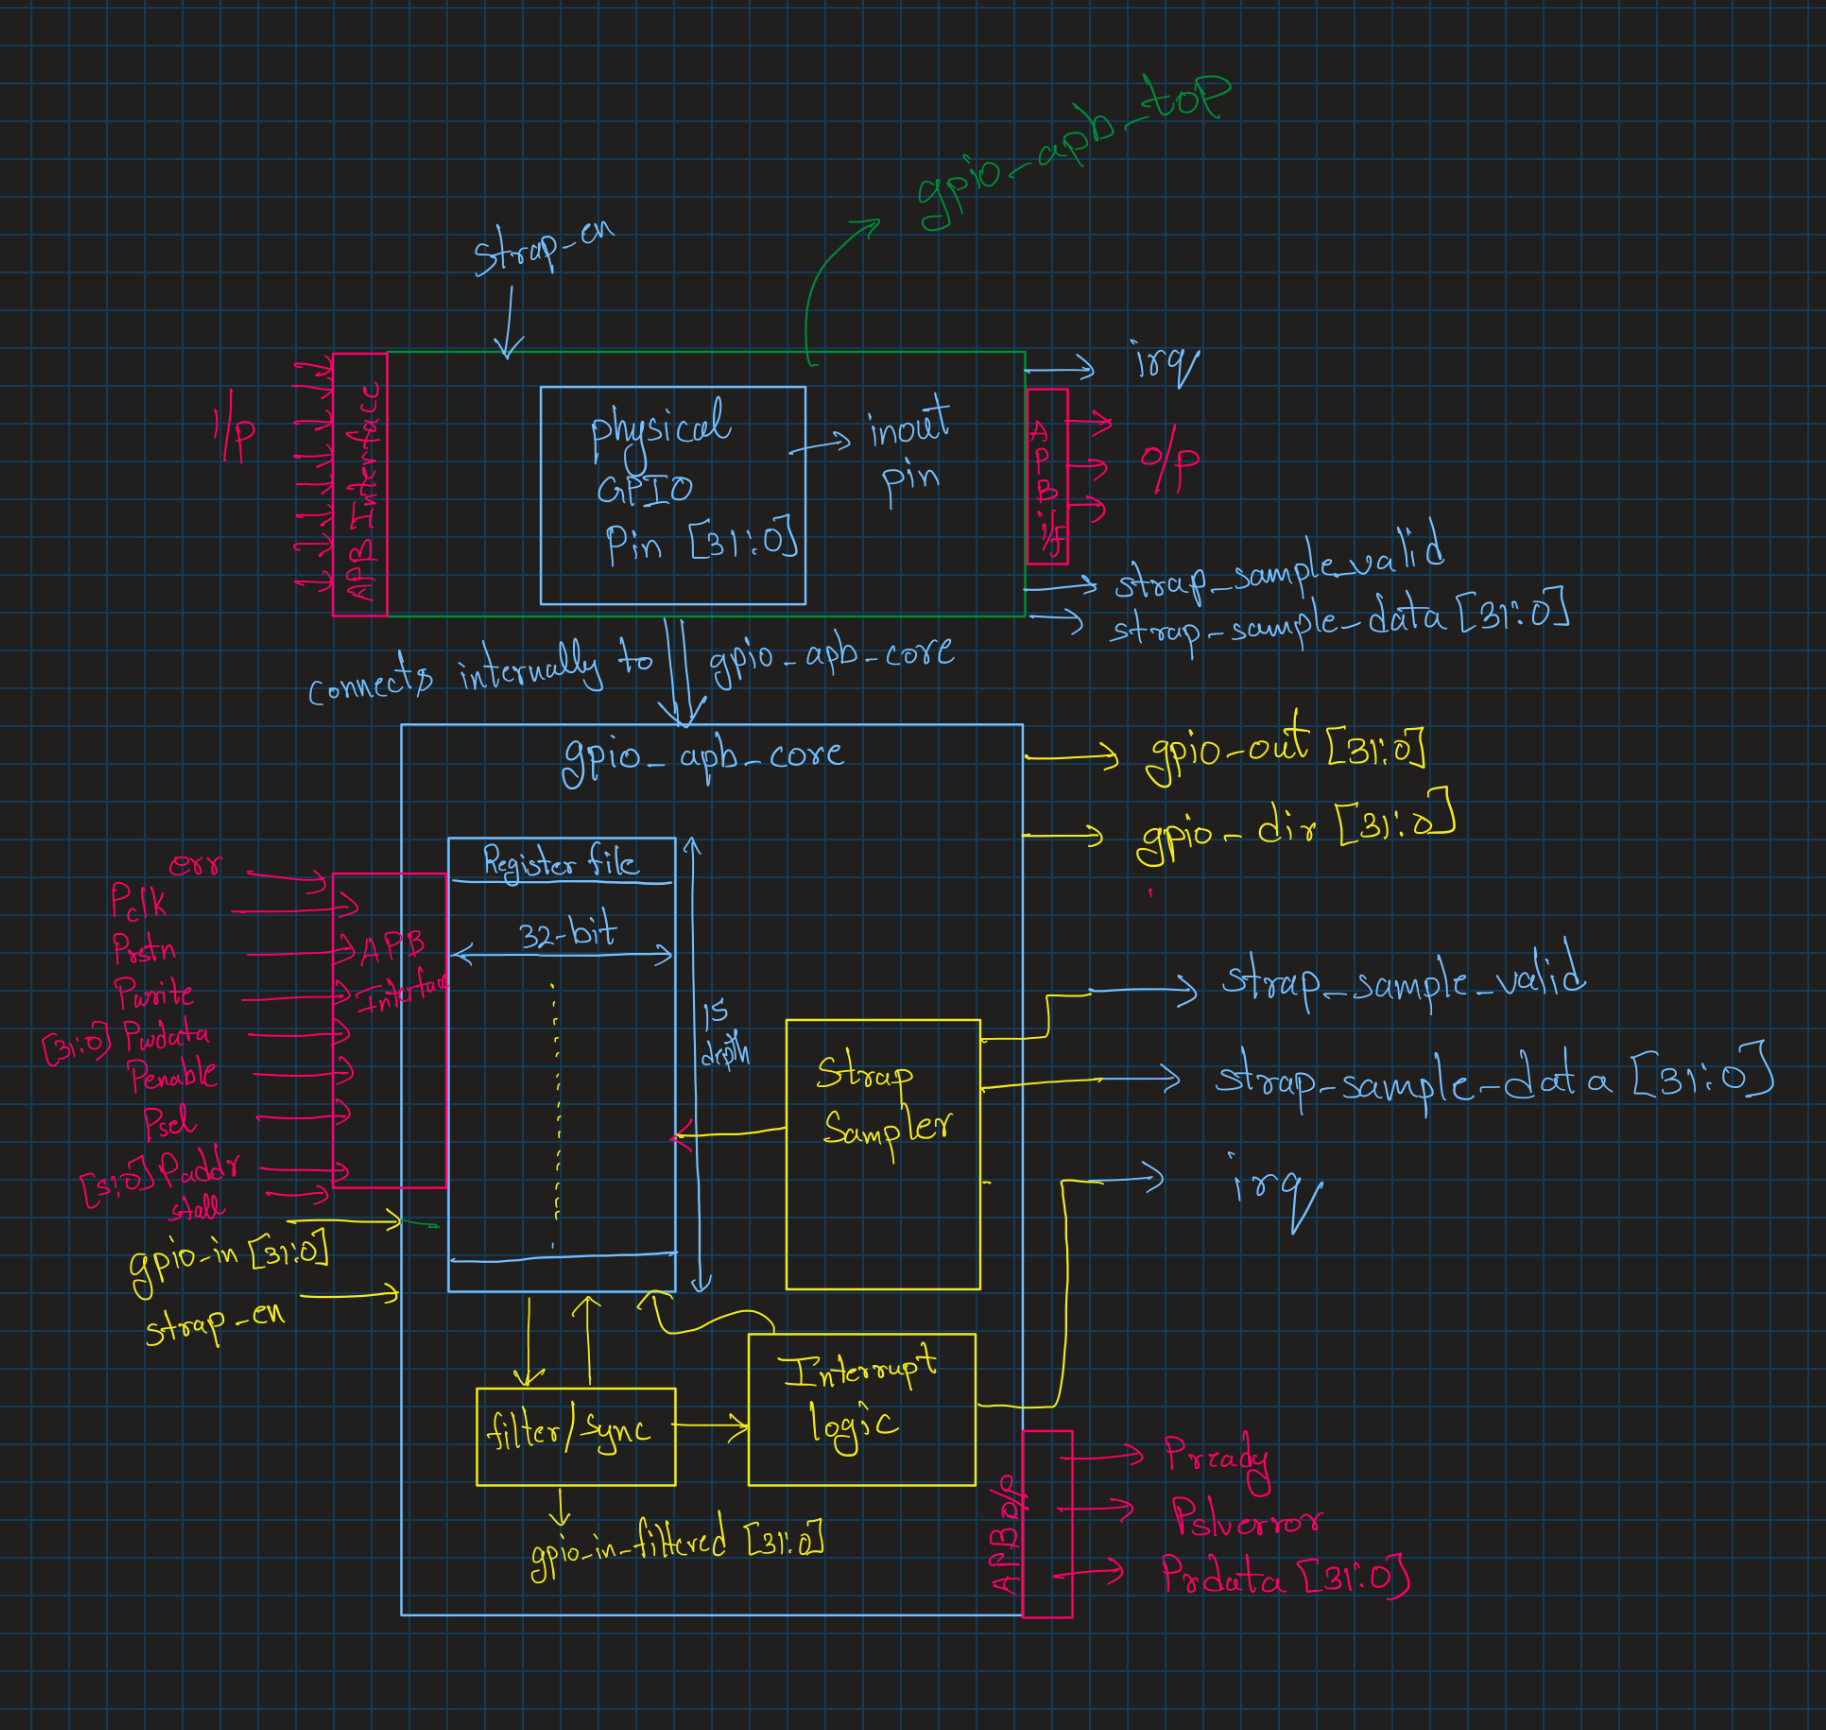 gpio-apb-top
strap-en
irq
I/P
APB Interface
physical
GPIO
Pin [31:0]
inout
pin
APB i/f
O/P
strap_sample_valid
strap-sample-data [31:0]
connects internally to
gpio-apb-core
gpio_apb_core
gpio-out [31:0]
gpio-dir [31:0]
Register file
32-bit
15
depth
err
Pclk
Prstn
Pwrite
[31:0] Pwdata
Penable
Psel
[5:0] Paddr
stall
APB
Interface
gpio-in [31:0]
strap-en
Strap
Sampler
strap_sample_valid
strap-sample-data [31:0]
irq
filter/sync
Interrupt
logic
gpio-in-filtered [31:0]
APB O/P
Pready
Pslverror
Prdata [31:0]